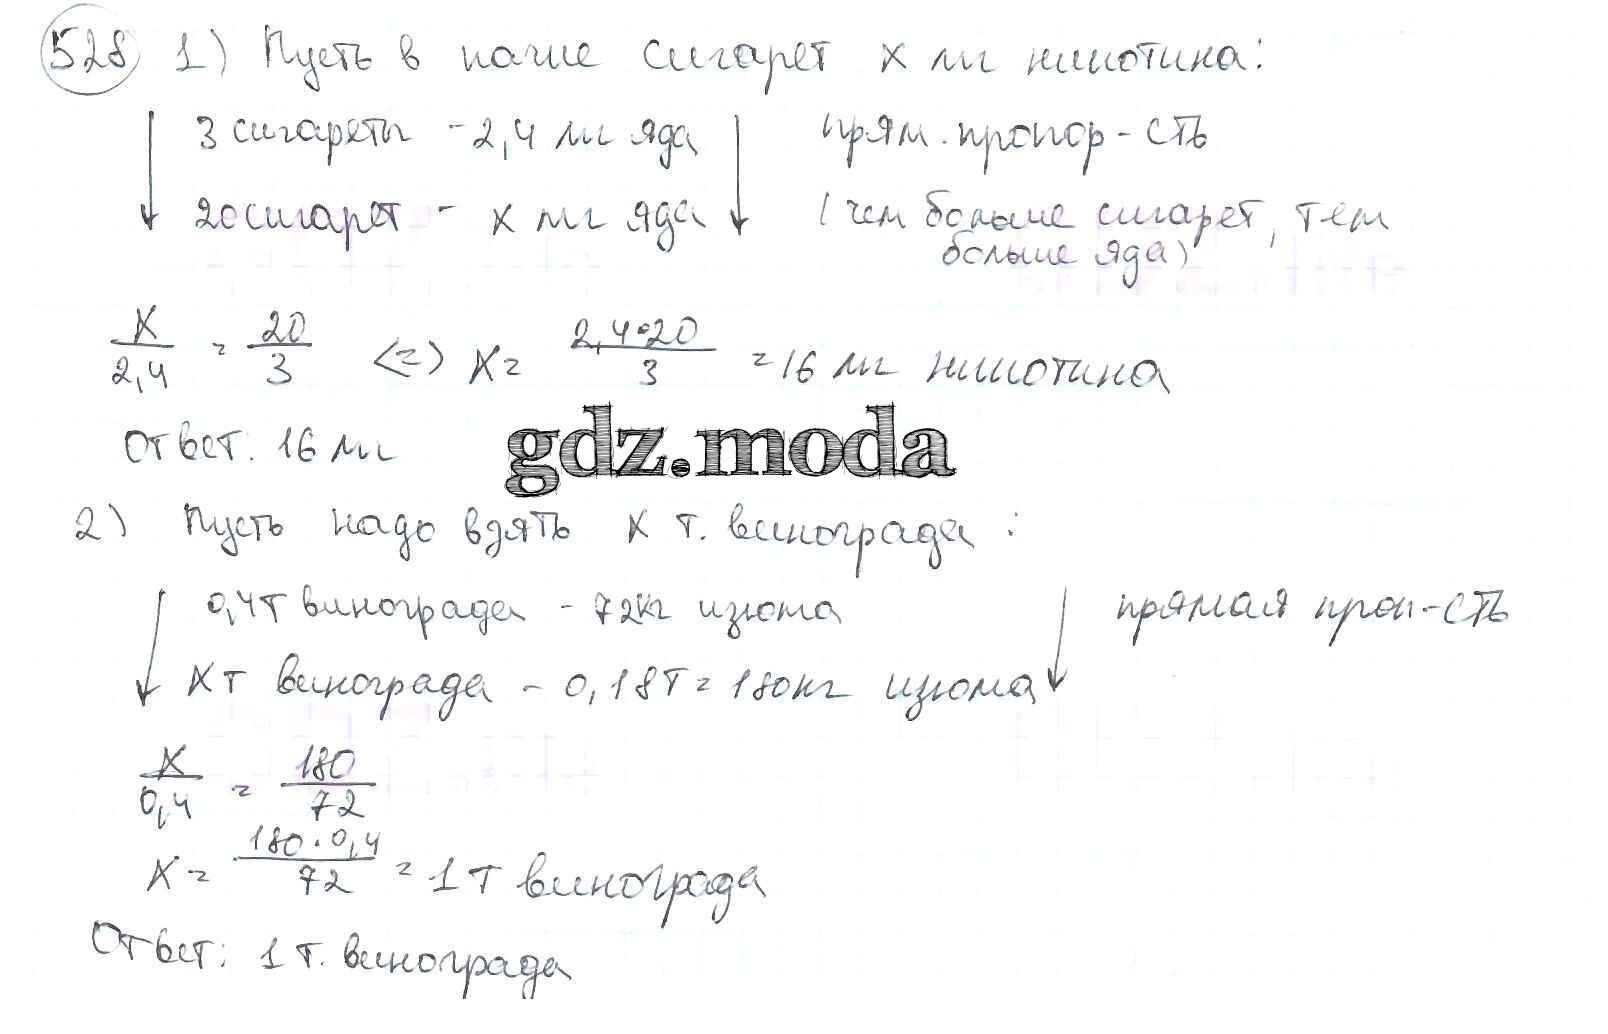 528 1) Пусть в пачке сигарет x мг никотина:
3 сигареты - 2,4 мг яда прям. пропор-сть
20 сигарет - x мг яда (чем больше сигарет, тем
больше яда)
x/2,4 = 20/3 <=> x = 2,4•20/3 = 16 мг никотина
Ответ: 16 мг
gdz.moda
2) Пусть надо взять x т. винограда:
0,4т винограда - 72кг изюма прямая проп-сть
x т винограда - 0,18т = 180кг изюма
x/0,4 = 180/72
x = 180·0,4/72 = 1 т винограда
Ответ: 1 т. винограда